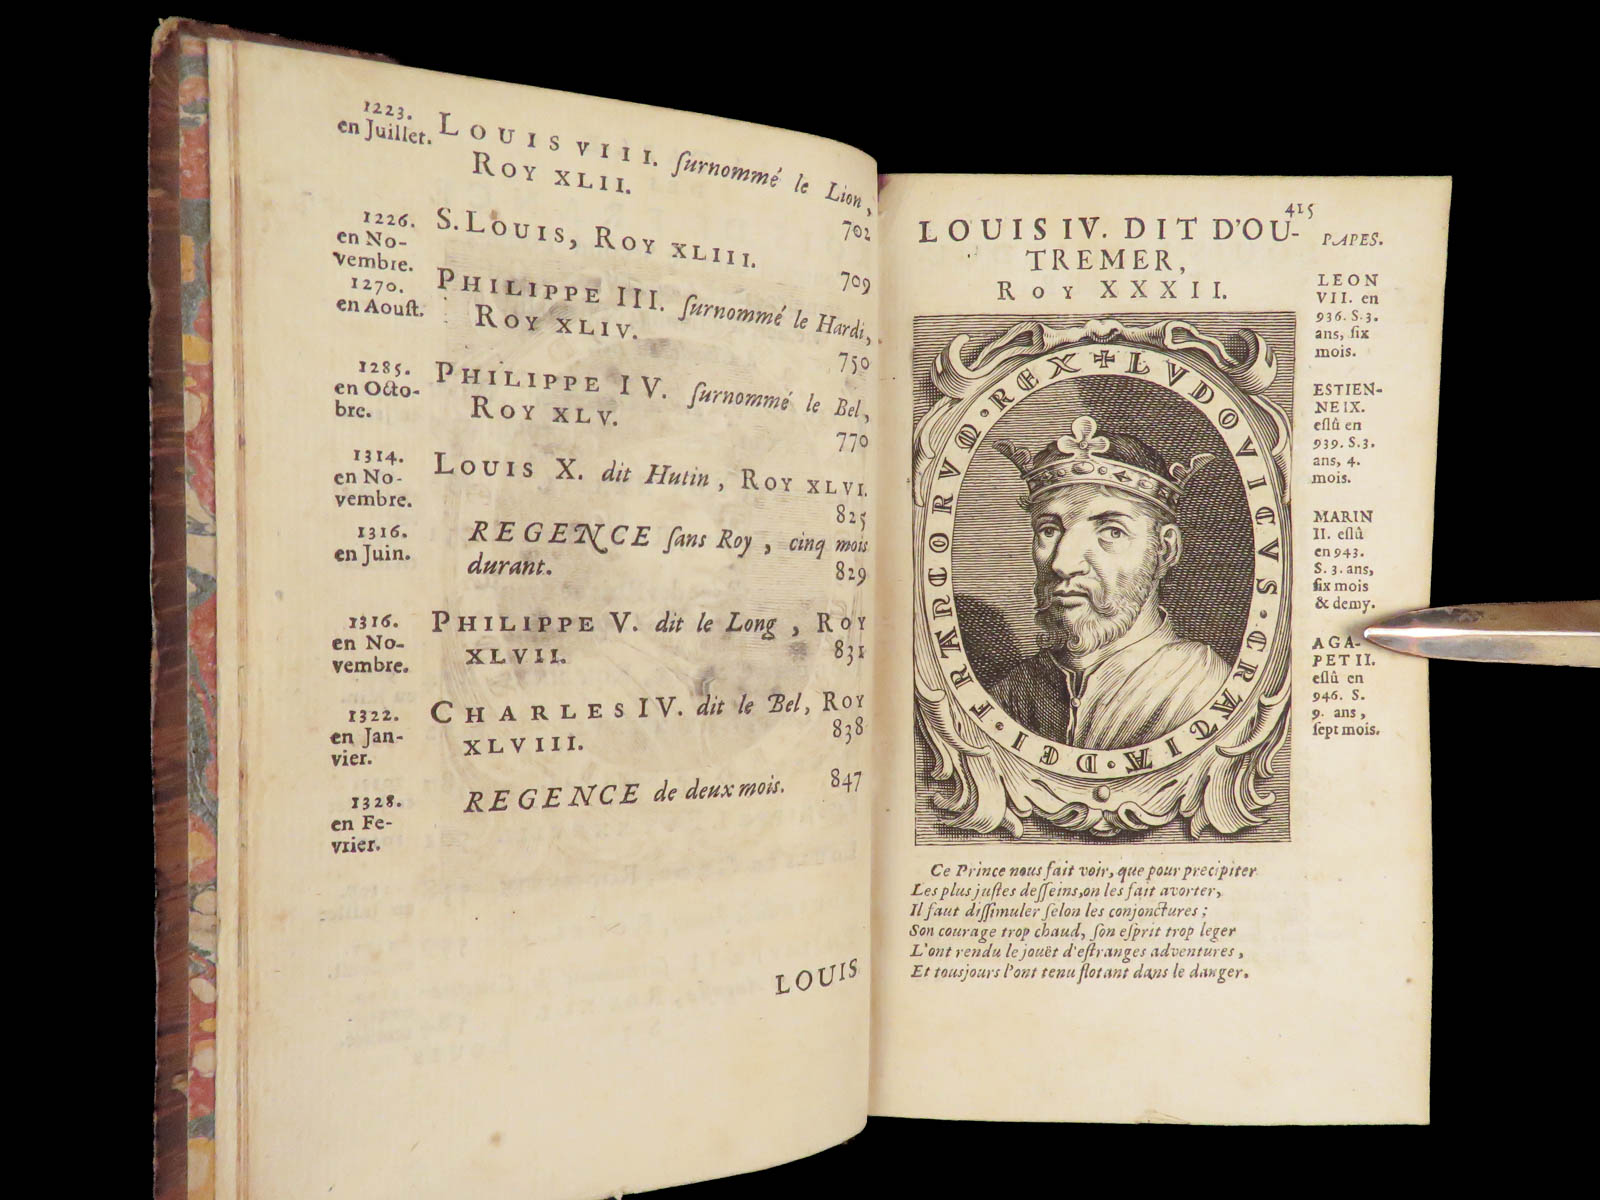 1223.
en Juillet.
LOUIS VIII. ſurnommé le Lion,
ROY XLII.
702
1226.
en No-
vembre.
S. LOUIS, ROY XLIII.
709
1270.
en Aouſt.
PHILIPPE III. ſurnommé le Hardi,
ROY XLIV.
750
1285.
en Octo-
bre.
PHILIPPE IV. ſurnommé le Bel,
ROY XLV.
770
1314.
en No-
vembre.
LOUIS X. dit Hutin, ROY XLVI.
825
1316.
en Juin.
REGENCE ſans Roy, cinq mois
durant.
829
1316.
en No-
vembre.
PHILIPPE V. dit le Long, ROY
XLVII.
831
1322.
en Jan-
vier.
CHARLES IV. dit le Bel, ROY
XLVIII.
838
1328.
en Fe-
vrier.
REGENCE de deux mois.
847
LOUIS
415
LOUIS IV. DIT D'OU-
TREMER,
ROY XXXII.
LVDOVICVS · GRATIA · DEI · FRANCORVM · REX
Ce Prince nous fait voir, que pour precipiter
Les plus juſtes deſſeins, on les fait avorter,
Il faut diſſimuler ſelon les conjonctures;
Son courage trop chaud, ſon eſprit trop leger
L'ont rendu le jouët d'eſtranges adventures,
Et tousjours l'ont tenu flotant dans le danger.
PAPES.
LEON
VII. en
936. S. 3.
ans, ſix
mois.
ESTIEN-
NE IX.
eſlû en
939. S. 3.
ans, 4.
mois.
MARIN
II. eſlû
en 943.
S. 3. ans,
ſix mois
& demy.
AGA-
PET II.
eſlû en
946. S.
9. ans,
ſept mois.